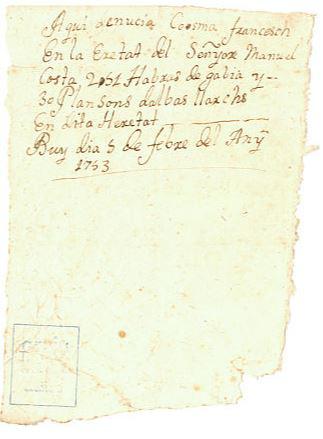 Aqui denucia Coosma francesch
En la Eretat del Señyor Manuel
Costa 2051 Habres de gabia y--
30 Plansons dalbas llarchs
En dita Heretat
Buy dia 5 de febre del Any
1753